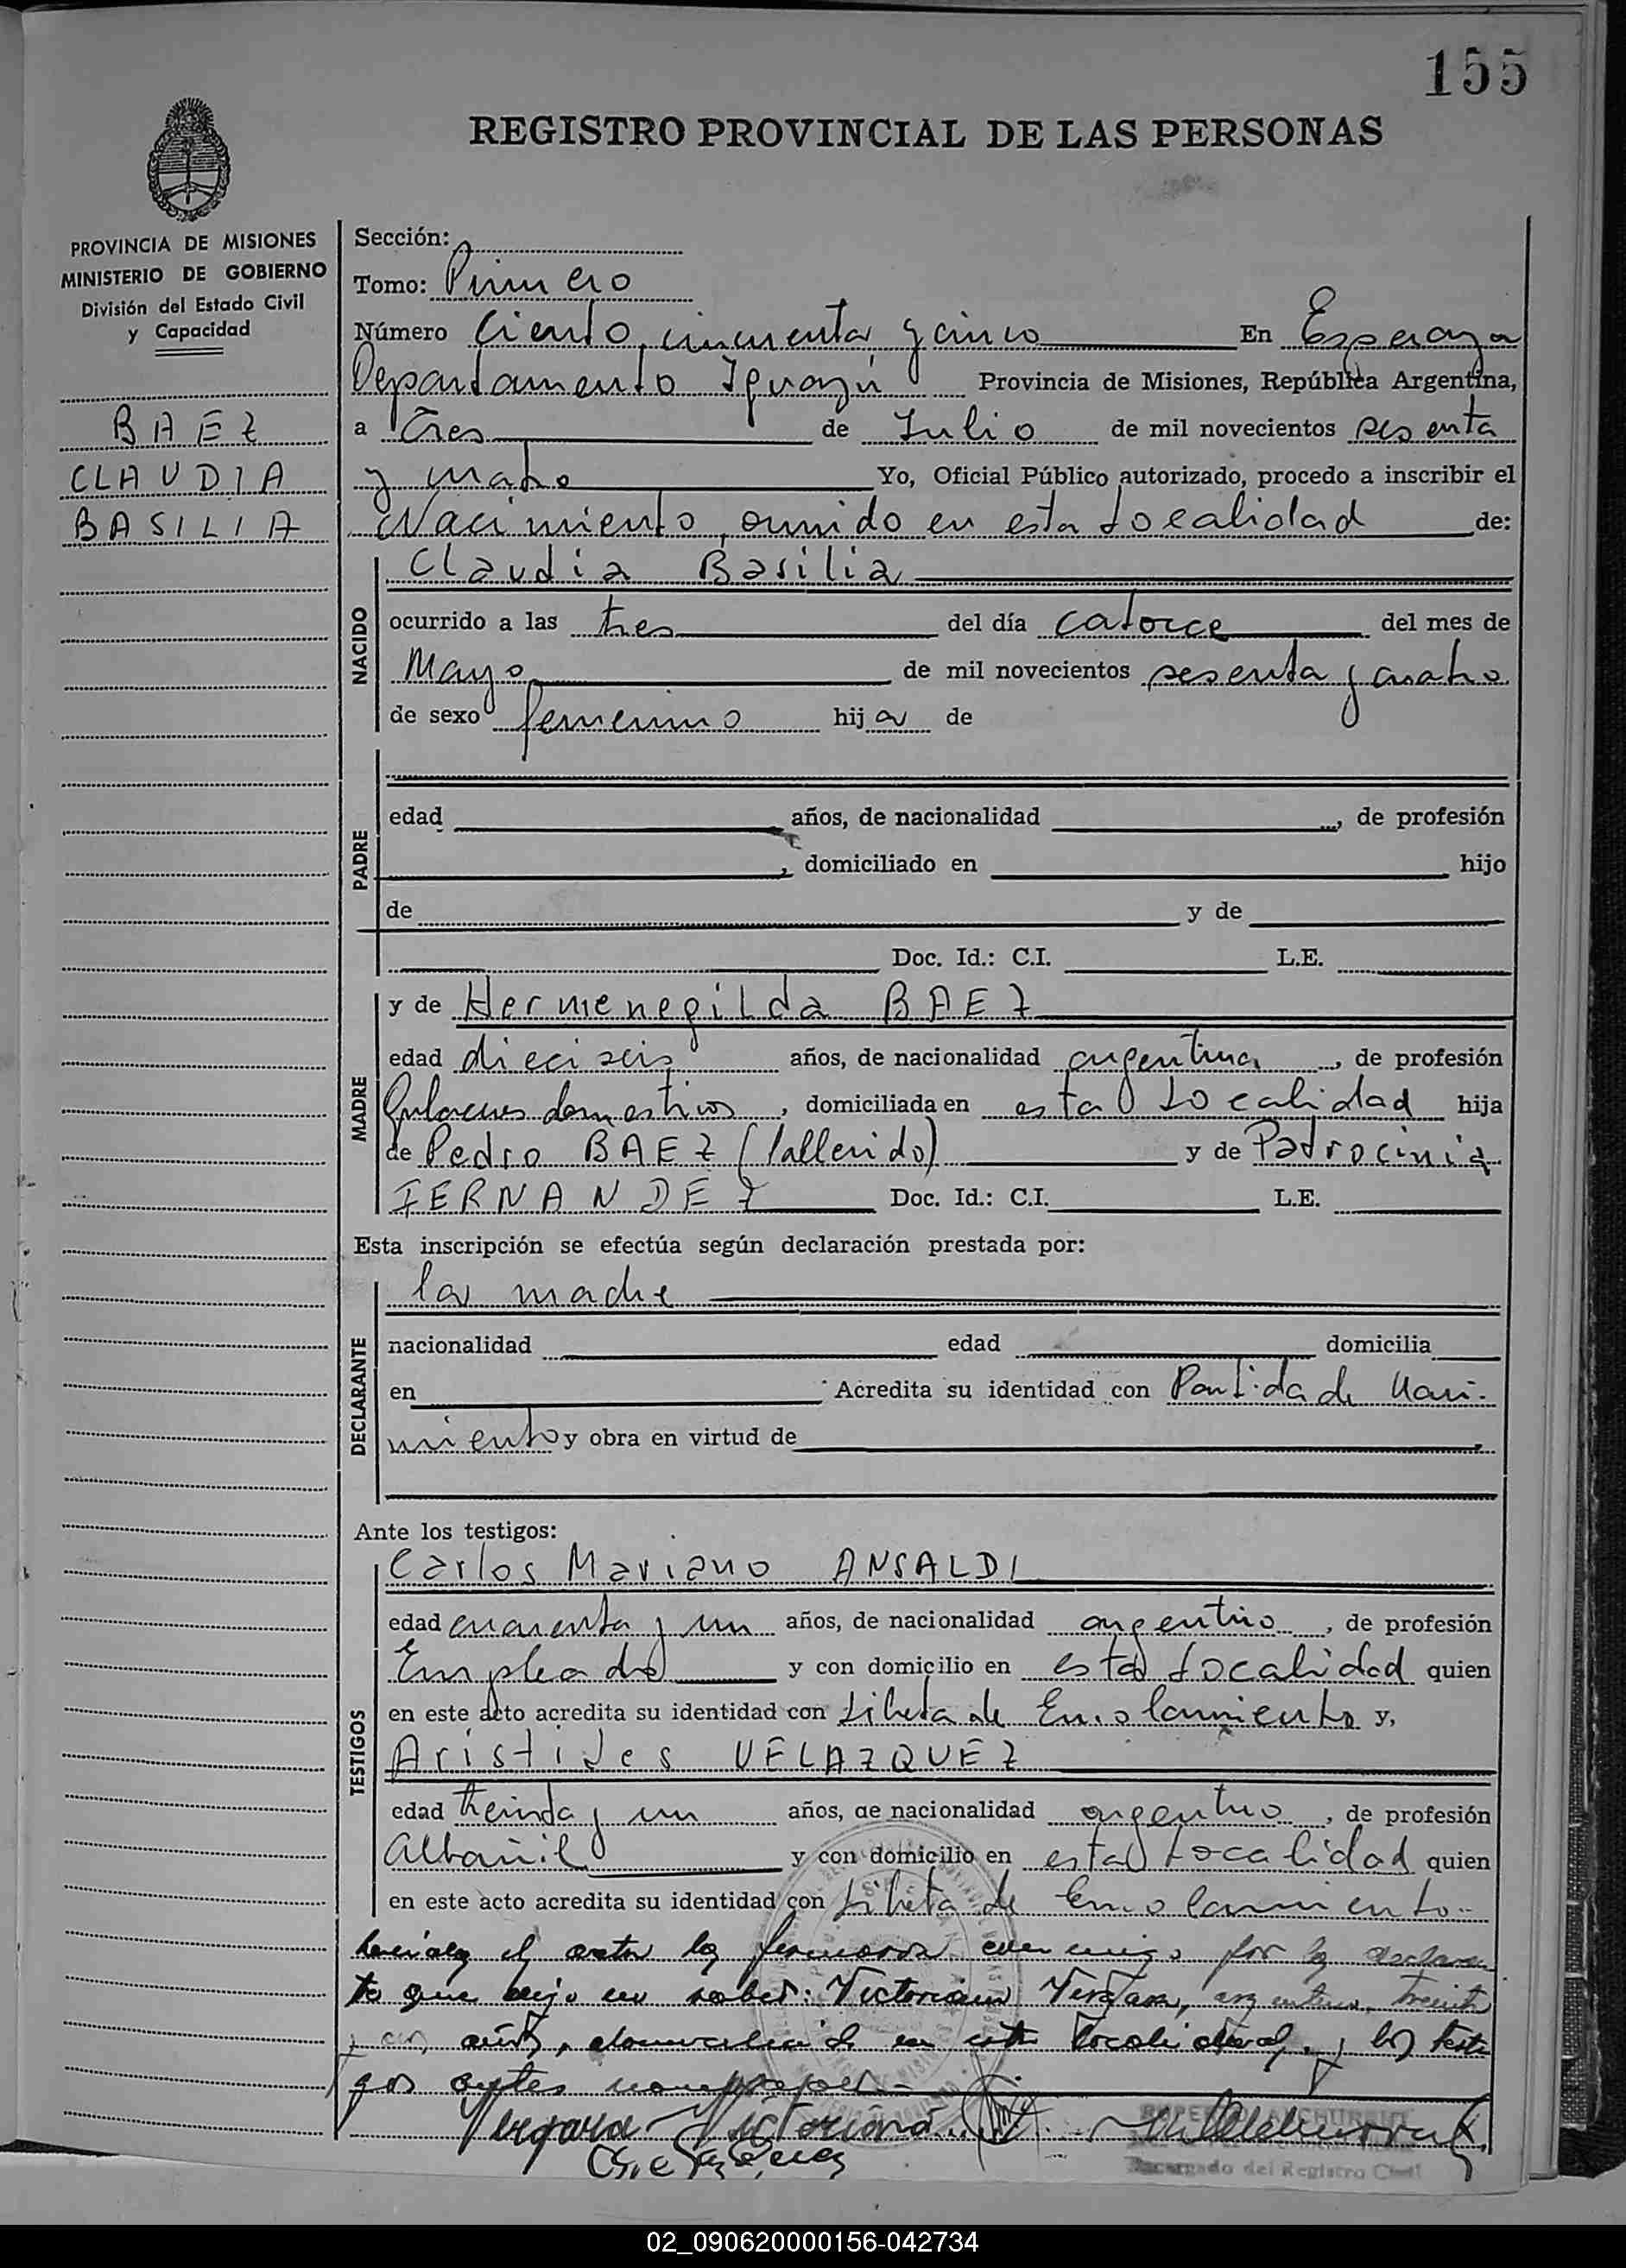 155
REGISTRO PROVINCIAL DE LAS PERSONAS
PROVINCIA DE MISIONES
MINISTERIO DE GOBIERNO
División del Estado Civil
y Capacidad
BAEZ
CLAUDIA
BASILIA
Sección:
Tomo: Primero
Número Ciento cincuenta y cinco En Esperanza
Departamento Iguazú Provincia de Misiones, República Argentina,
a Tres de Julio de mil novecientos sesenta
y cuatro Yo, Oficial Público autorizado, procedo a inscribir el
Nacimiento, ocurrido en esta Localidad de:
NACIDO
Claudia Basilia
ocurrido a las tres del día catorce del mes de
Mayo de mil novecientos sesenta y cuatro
de sexo femenino hija de
PADRE
edad años, de nacionalidad , de profesión
, domiciliado en hijo
de y de
Doc. Id.: C.I. L.E.
MADRE
y de Hermenegilda BAEZ
edad dieciseis años, de nacionalidad argentina, de profesión
Quhaceres domesticos, domiciliada en esta Localidad hija
de Pedro BAEZ (fallecido) y de Patrocinia
FERNANDEZ Doc. Id.: C.I. L.E.
Esta inscripción se efectúa según declaración prestada por:
DECLARANTE
la madre
nacionalidad edad domicilia
en Acredita su identidad con Partida de Naci-
miento y obra en virtud de
Ante los testigos:
TESTIGOS
Carlos Mariano ANSALDI
edad cuarenta y un años, de nacionalidad argentino, de profesión
Empleado y con domicilio en esta Localidad quien
en este acto acredita su identidad con Libreta de Enrolamiento y,
Aristides VELAZQUEZ
edad treinta y un años, de nacionalidad argentino, de profesión
Albañil y con domicilio en esta Localidad quien
en este acto acredita su identidad con Libreta de Enrolamiento.-
el acta la conmigo por la
te que dijo no saber: Victoriana Vergara, argentina, treinta
y años, domiciliada en esta localidad. y los testi
gos antes
Vergara Victoriana
Encargado del Registro Civil
02_090620000156-042734